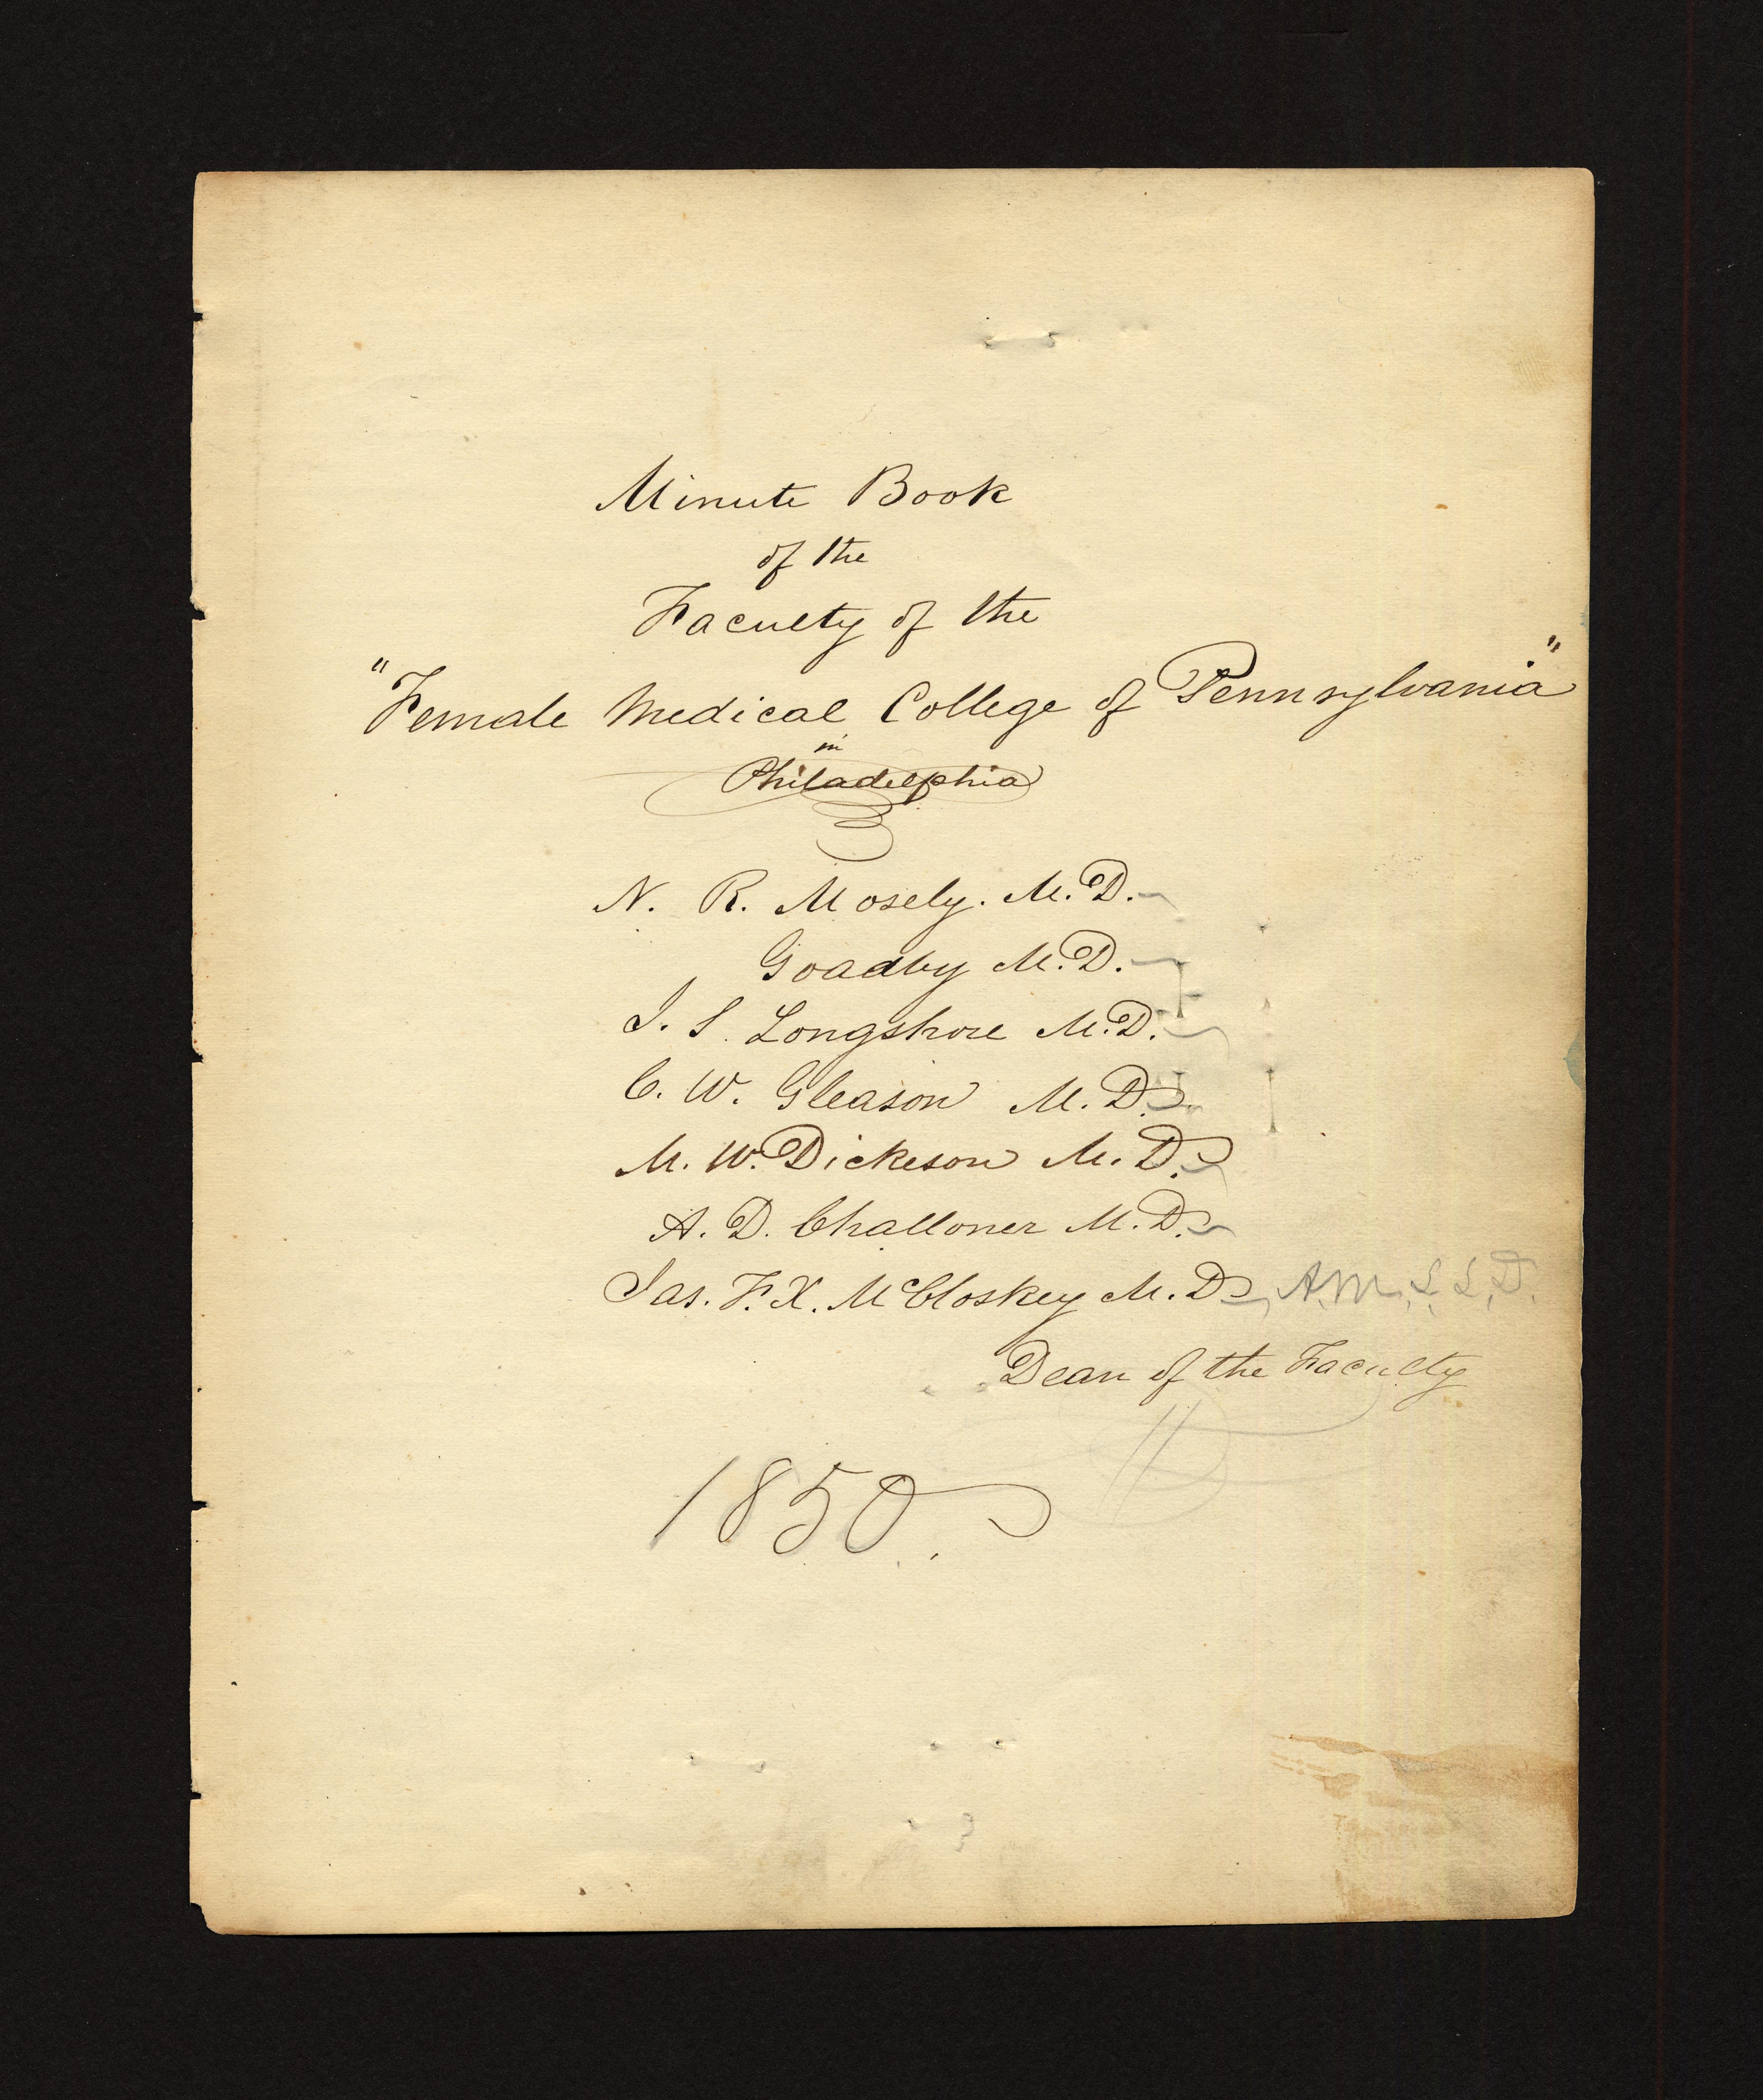 Minute Book
of the
Faculty of the
"Female Medical College of Pennsylvania"
in
Philadelphia
N. R. Mosely. M.D.
Goadby M.D.
J. S. Longshore M.D.
C. W. Gleason M.D.
M. W. Dickeson M.D.
A. D. Challoner M.D.
Jas. F. X. McCloskey M.D, A.M., L.L.D.
Dean of the Faculty
1850.